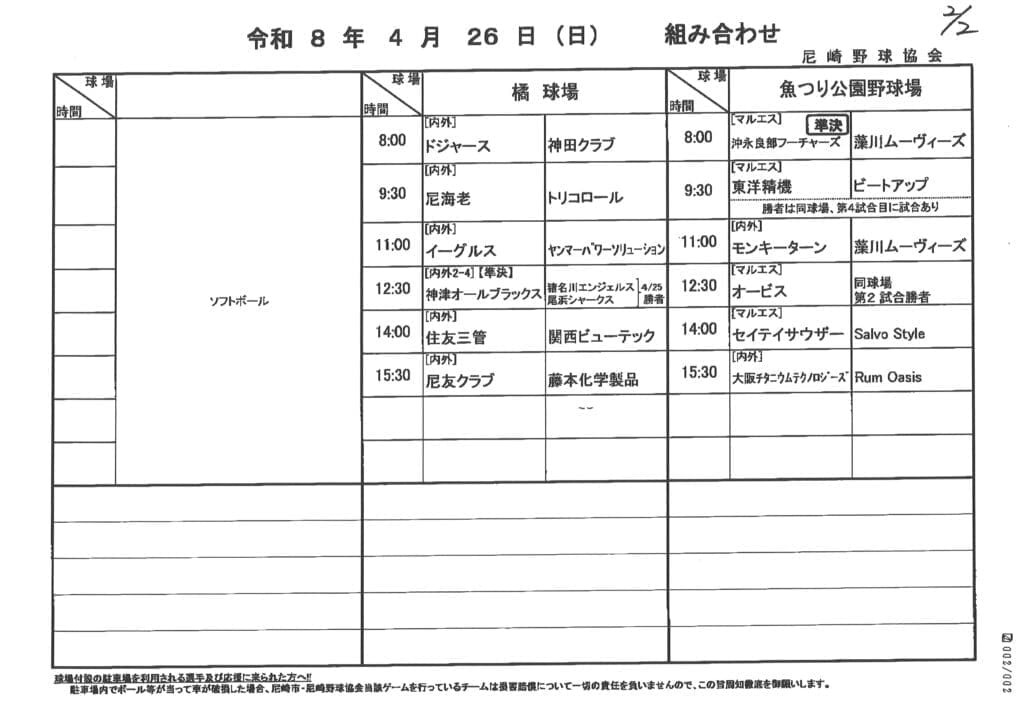 2/2
令和 8 年 4 月 26 日（日） 組み合わせ
尼崎野球協会
球場
時間
球場
時間
橘 球場
球場
時間
魚つり公園野球場
ソフトボール
8:00
[内外]
ドジャース
神田クラブ
9:30
[内外]
尼海老
トリコロール
11:00
[内外]
イーグルス
ヤンマーパワーソリューション
12:30
[内外2-4]【準決】
神津オールブラックス
猪名川エンジェルス
尾浜シャークス
4/25
勝者
14:00
[内外]
住友三管
関西ビューテック
15:30
[内外]
尼友クラブ
藤本化学製品
8:00
[マルエス]
準決
沖永良部フーチャーズ
藻川ムーヴィーズ
9:30
[マルエス]
東洋精機
ビートアップ
勝者は同球場、第4試合目に試合あり
11:00
[内外]
モンキーターン
藻川ムーヴィーズ
12:30
[マルエス]
オービス
同球場
第2 試合勝者
14:00
[マルエス]
セイテイサウザー
Salvo Style
15:30
[内外]
大阪チタニウムテクノロジーズ
Rum Oasis
球場付設の駐車場を利用される選手及び応援に来られた方へ!!
駐車場内でボール等が当って車が破損した場合、尼崎市・尼崎野球協会当該ゲームを行っているチームは損害賠償について一切の責任を負いませんので、この旨周知徹底を御願いします。
002/002